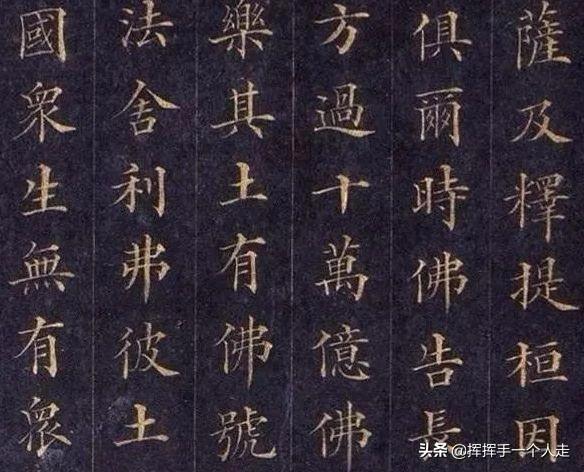 薩及釋提桓因
俱爾時佛告長
方過十萬億佛
樂其土有佛號
法舍利弗彼土
國眾生無有眾
头条 @挥挥手一个人走